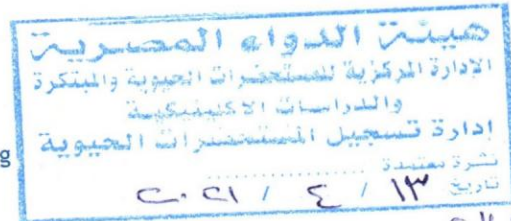 هيئة الدواء المصرية
الإدارة المركزية للمستحضرات الحيوية والمبتكرة
والدراسات الاكلينيكية
إدارة تسجيل المستحضرات الحيوية
نشرة معتمدة
تاريخ ١٣ / ٤ / ٢٠٢١
g